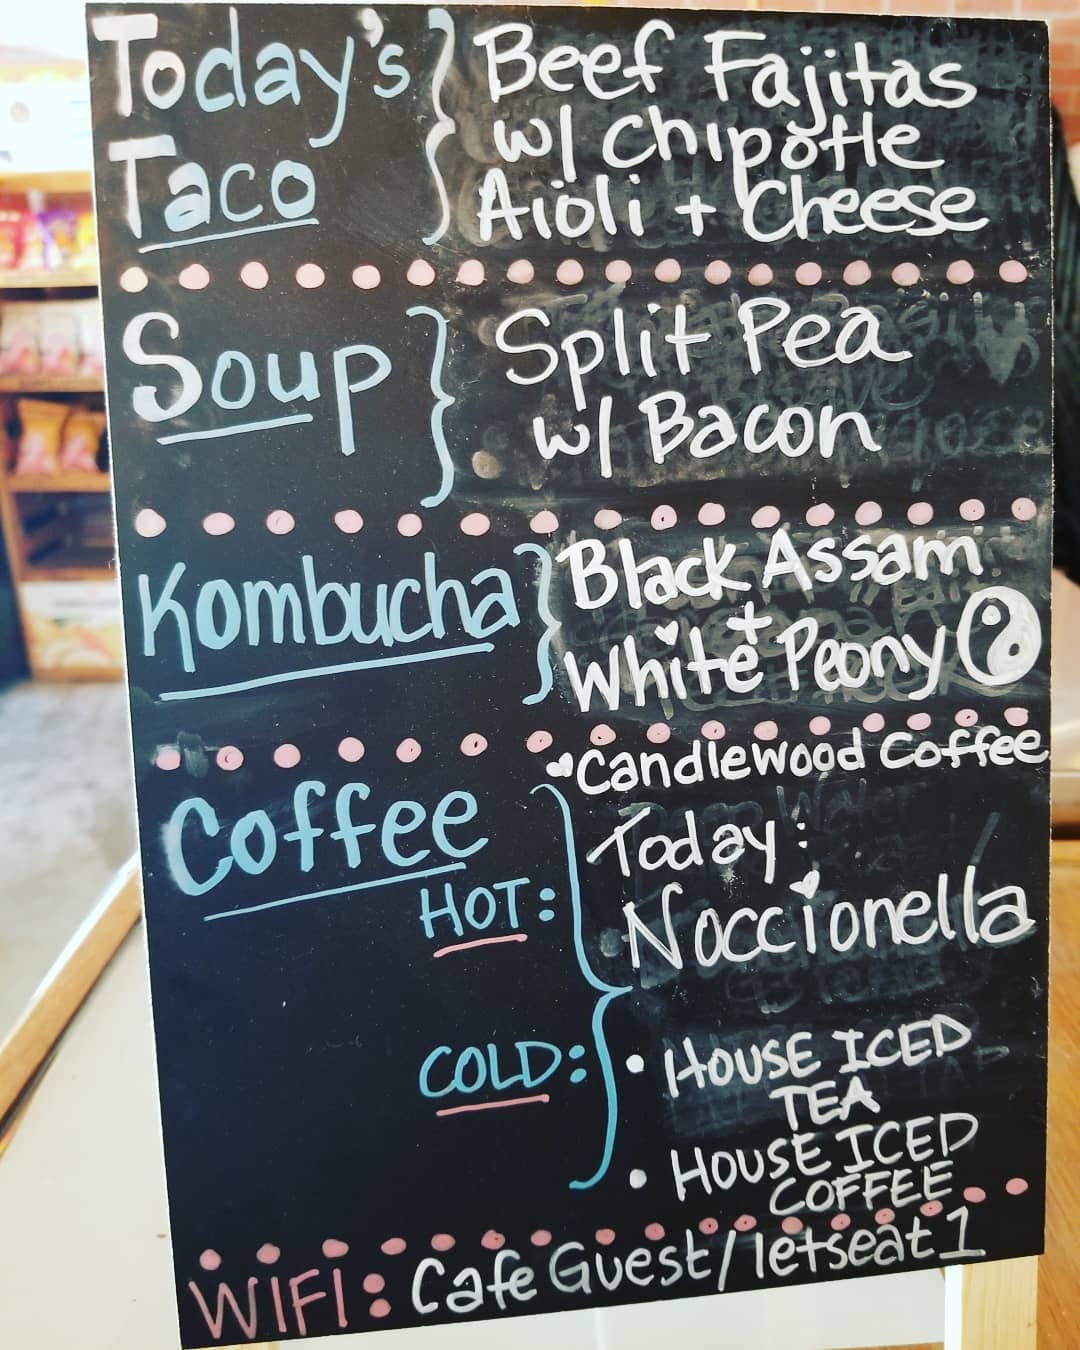 Today's
Taco
Beef Fajitas
w/ Chipotle
Aioli + Cheese
Soup
Split Pea
w/ Bacon
Kombucha
Black Assam
+
White Peony
Coffee
Candlewood Coffee
Today:
HOT:
Noccionella
COLD:
• HOUSE ICED
TEA
• HOUSE ICED
COFFEE
WIFI: Cafe Guest/letseat1